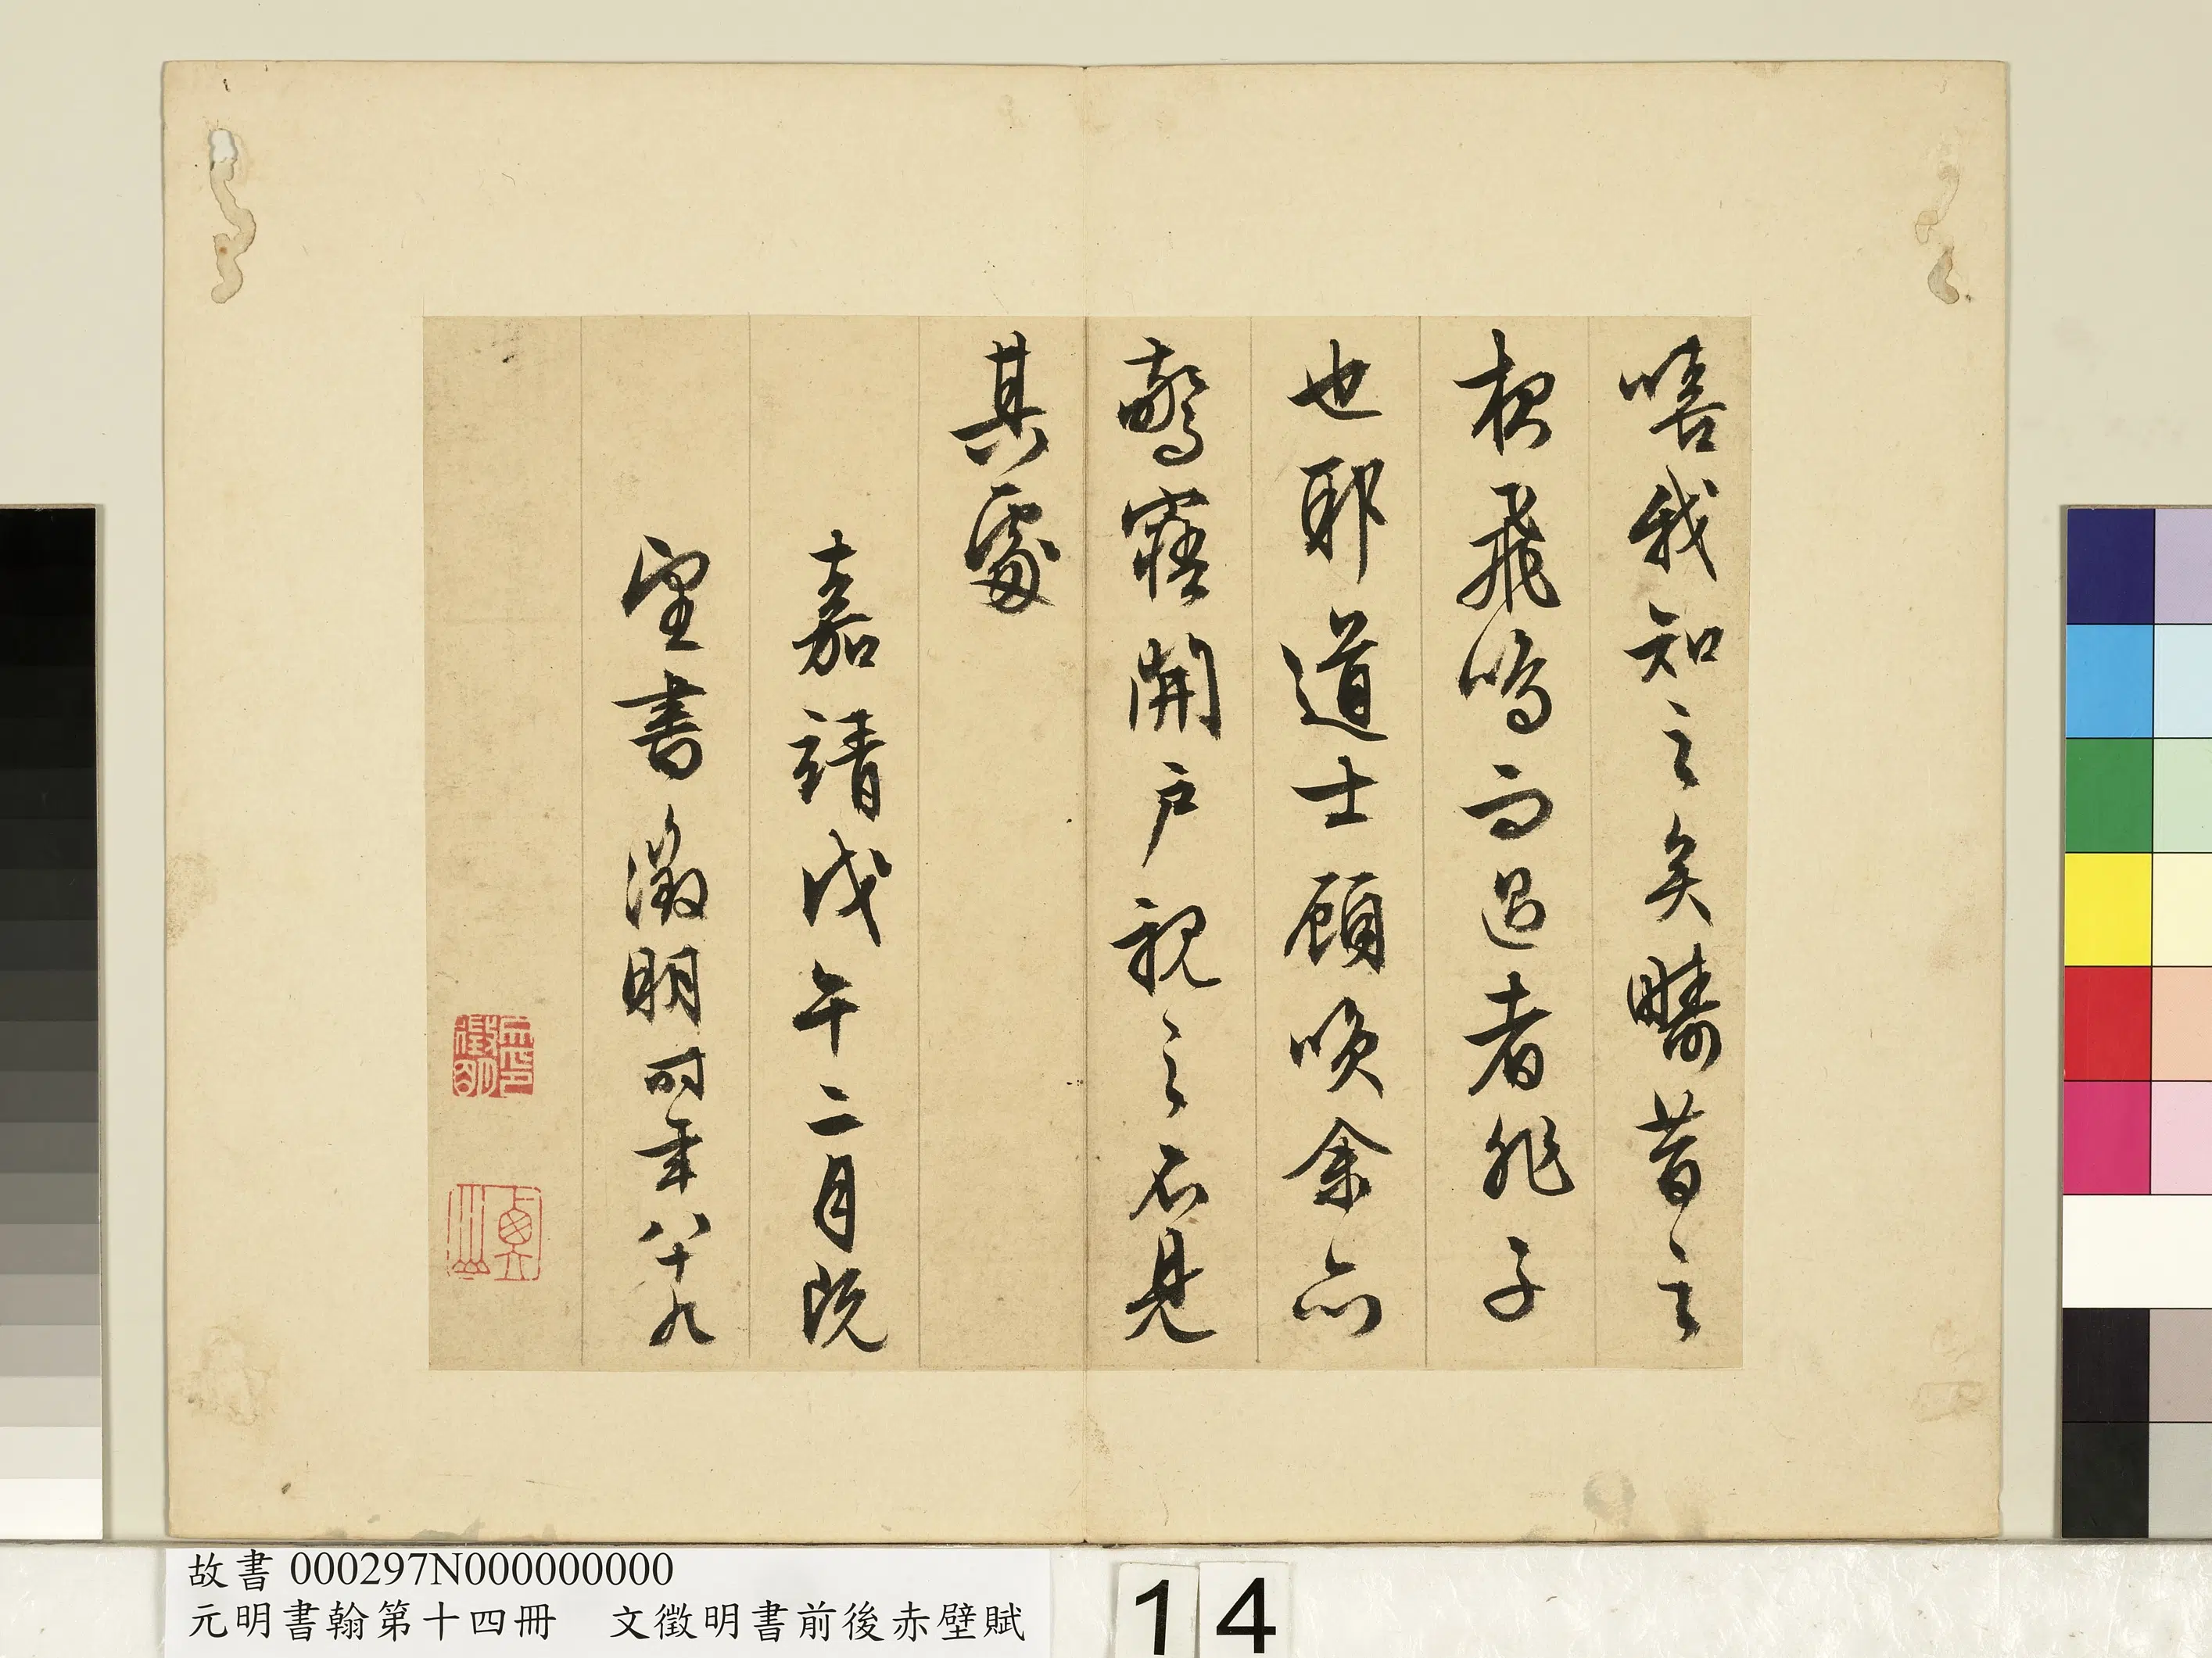 嘻我知之矣疇昔之
夜飛鳴而過者非子
也耶道士顧咲余亦
驚寤開戶視之不見
其處
嘉靖戊午二月既
望書徵明時年八十九
文徵明印
故書 000297N000000000
元明書翰第十四冊 文徵明書前後赤壁賦
14